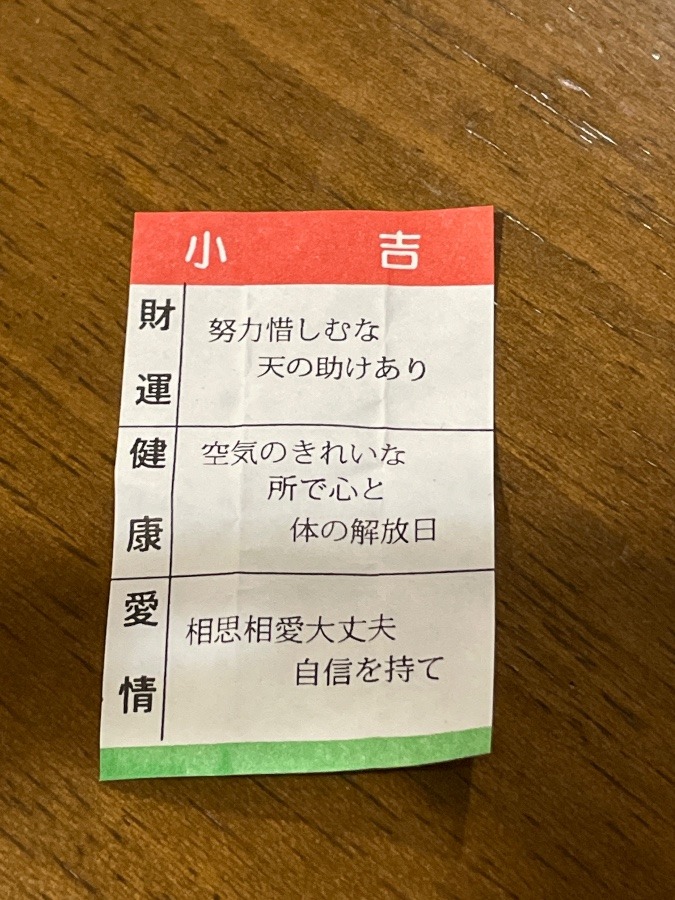 小吉
財運
努力惜しむな
天の助けあり
健康
空気のきれいな
所で心と
体の解放日
愛情
相思相愛大丈夫
自信を持て